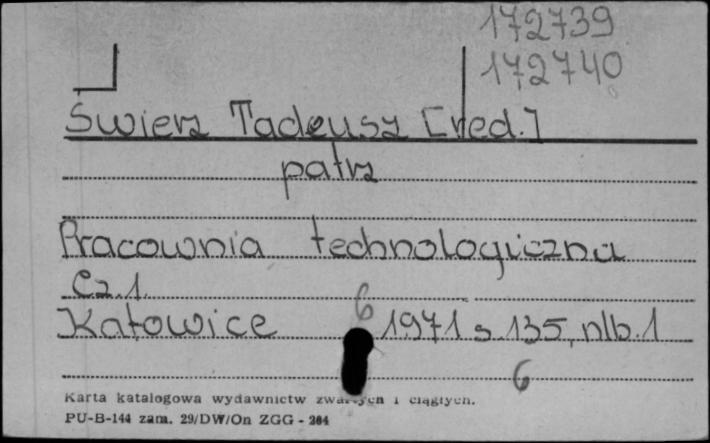 172739
172740
Świerz Tadeusz [red.]
patrz
Pracownia technologiczna
Cz.1.
Katowice 6 1971 s.135, nlb.1
6
Karta katalogowa wydawnictw zwartych i ciągłych.
PU-B-144 zam. 29/DW/On ZGG - 264